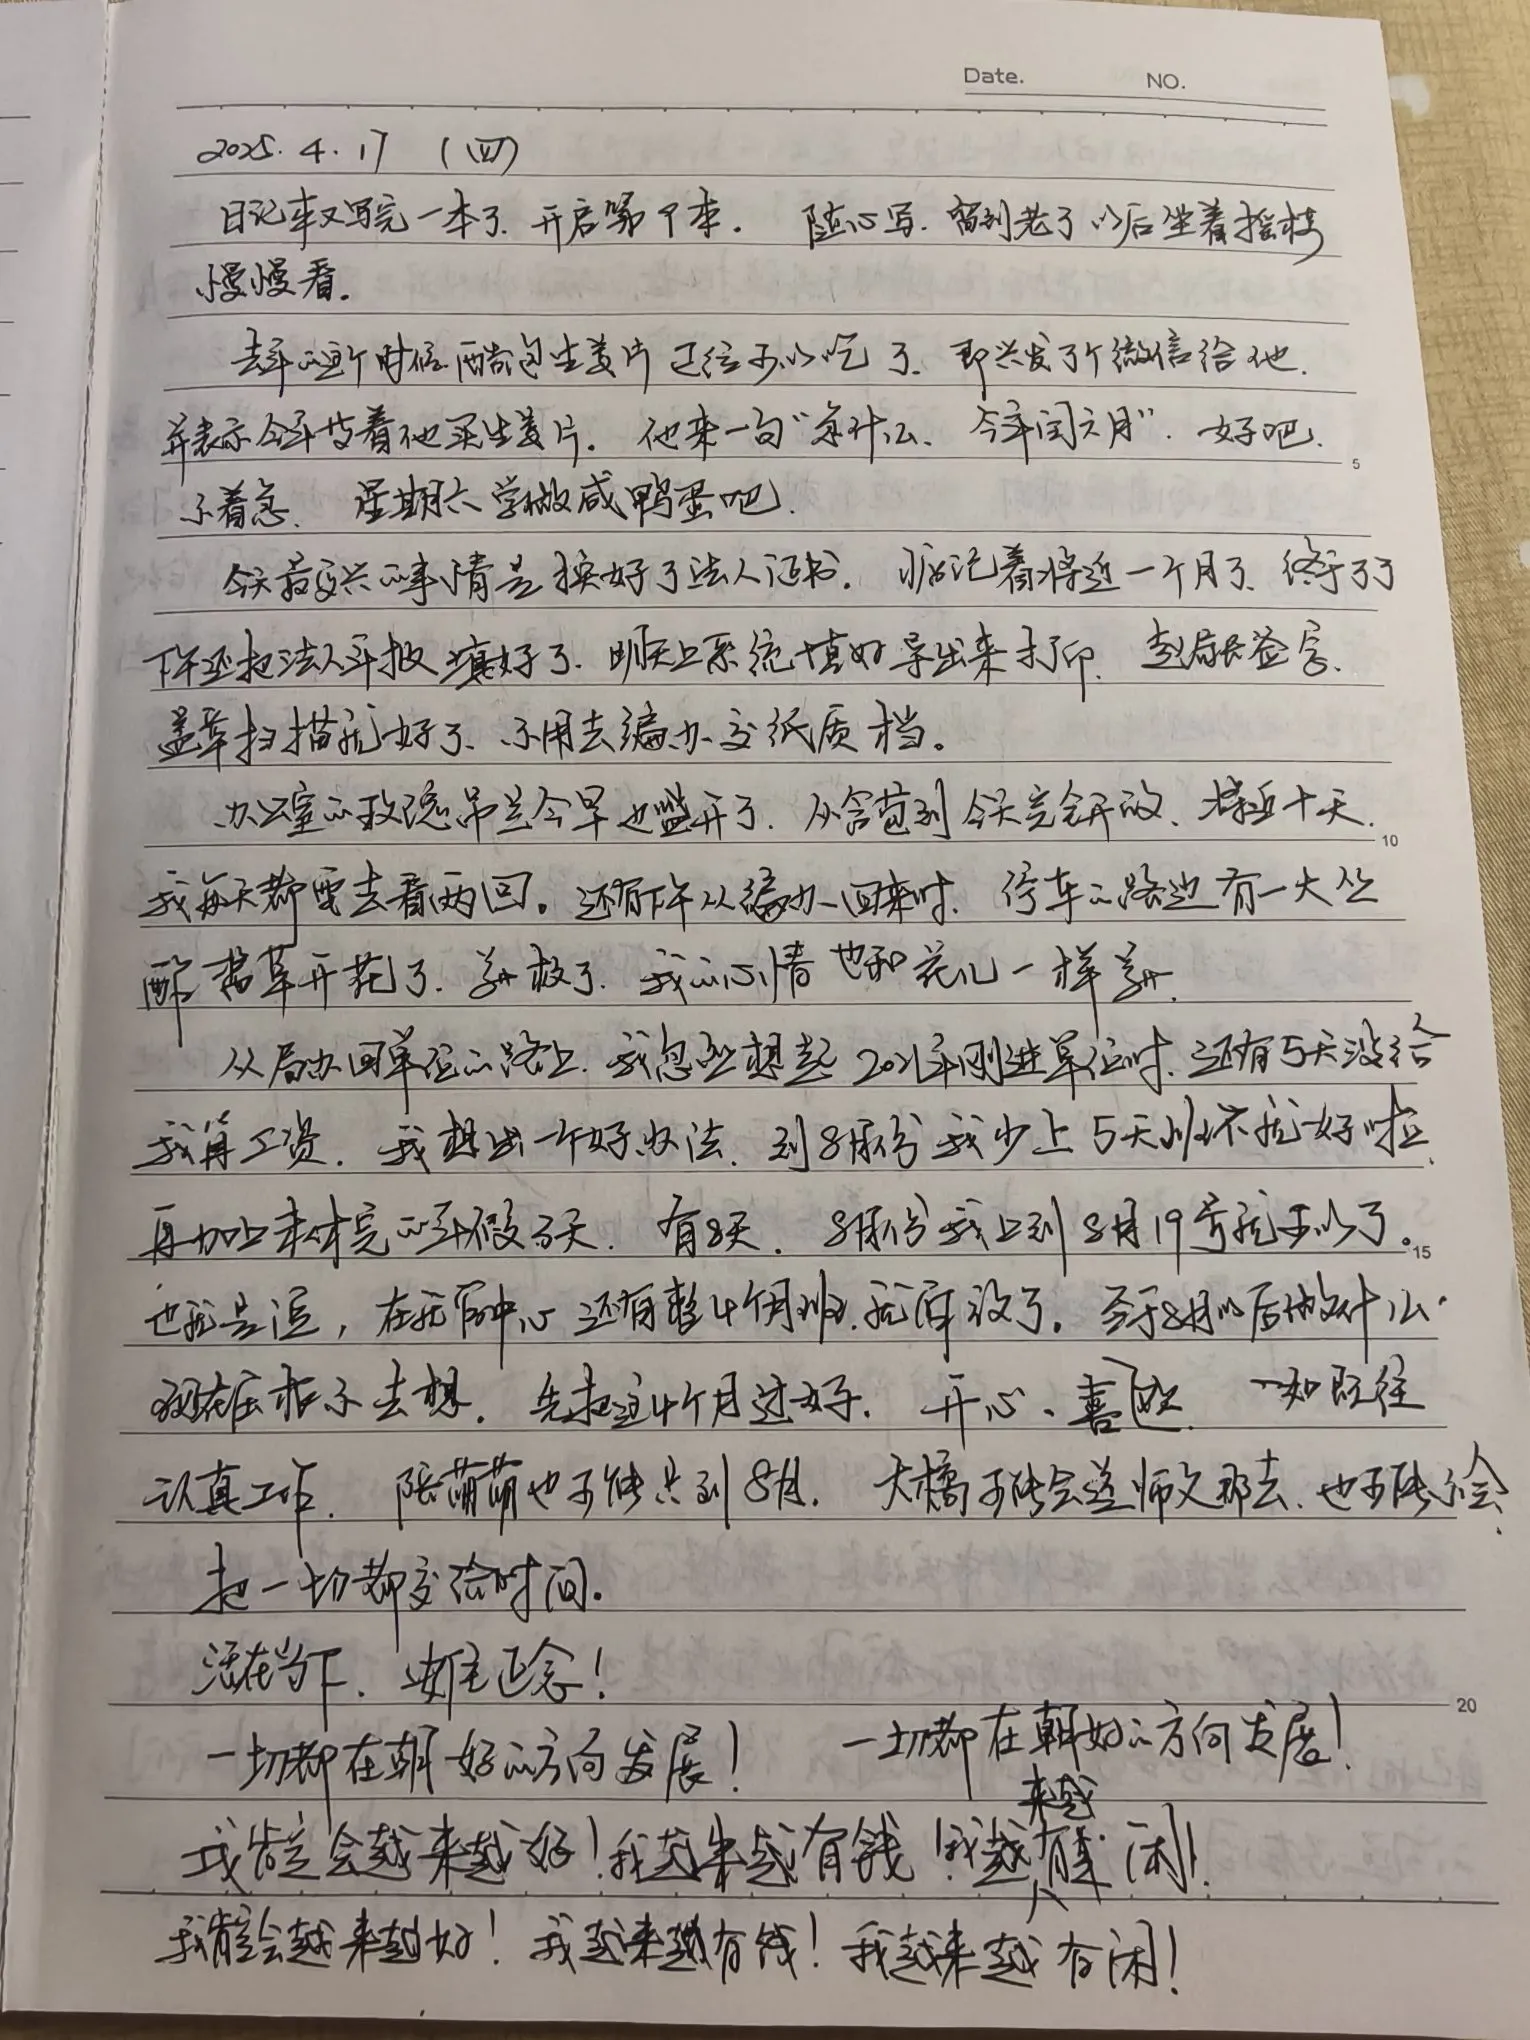 Date. NO.
2025.4.17 (四)
日记本又写完一本了、开启第个本。 随心写、留到老了以后坐着摇椅
慢慢看。
去年的这个时候醋泡生姜片已经可以吃了、即兴发了个微信给他、
并表示今年背着他买生姜片。他来一句“急什么、今年闰六月”。好吧、
5
不着急、星期六学做咸鸭蛋吧、
今天最高兴的事情是换好了法人证书。惦记着将近一个月了、终于了了
下午还把法人年报填好了、明天上系统填好导出来打印、赵局长签字、
盖章扫描就好了、不用去编办交纸质档。
办公室的玫瑰吊兰今早也盛开了、从含苞到今天完全开放、将近十天、
10
我每天都要去看两回。还有下午从编办回来时、停车的路边有一大丛
酢浆草开花了、美极了、我的心情也和花儿一样美、
从局办回单位的路上、我忽然想起2021年刚进单位时、还有5天没给
我算工资、我想出一个好办法、到8月份我少上5天班不就好啦、
再加上未休完的年假3天、有8天、8月份我上到8月19号就可以了。
15
也就是说，在 中心还有整4个月班、就解放了。至于8月以后做什么、
现在压根不去想。先把这4个月过好、开心、喜悦、一如既往
认真工作、陈萌萌也可能只到8月、大橘可能会送师父那去、也可能不会、
把一切都交给时间。
活在当下、安住正念！
20
一切都在朝好的方向发展！ 一切都在朝好的方向发展！
来越
我肯定会越来越好！我越来越有钱！我越有 闲！
我肯定会越来越好！我越来越有钱！我越来越有闲！